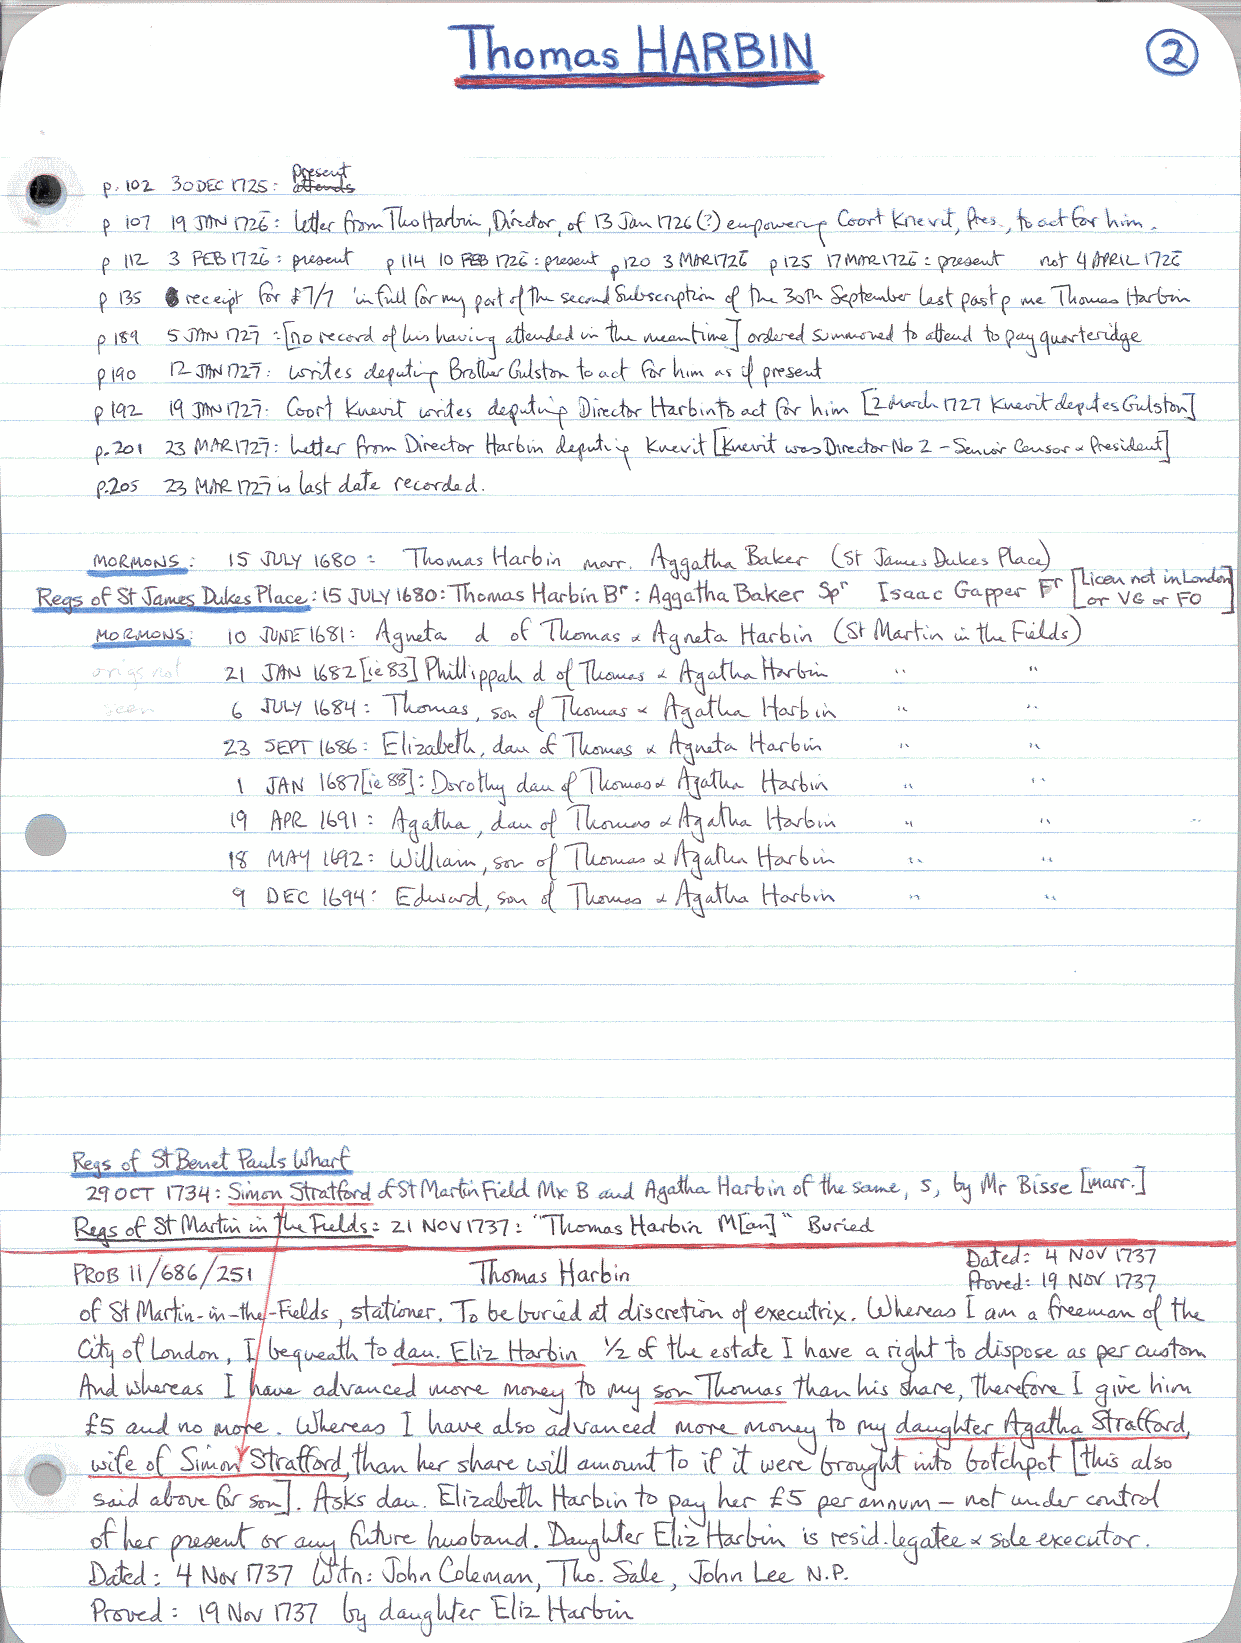 Thomas HARBIN
2
p. 102 30 DEC 1725: present attends
p 107 19 JAN 1726: Letter from Tho Harbin, Director, of 13 Jan 1726 (?) empowering Coort Knevit, Pres., to act for him.
p 112 3 FEB 1726: present p 114 10 FEB 1726: present p 120 3 MAR 1726 p 125 17 MAR 1726: present not 4 APRIL 1726
p 135 receipt for £7/7 'in full for my part of the second Subscription of the 30th September last past p me Thomas Harbin
p 189 5 JAN 1727: [no record of his having attended in the meantime] ordered summoned to attend to pay quarteridge
p 190 12 JAN 1727: writes deputing Brother Gulston to act for him as if present
p 192 19 JAN 1727: Coort Knevit writes deputing Director Harbin to act for him [2 March 1727 Knevit deputes Gulston]
p. 201 23 MAR 1727: Letter from Director Harbin deputing Knevit [Knevit was Director No 2 - Senior Censor & President]
p. 205 23 MAR 1727 is last date recorded.
MORMONS: 15 JULY 1680: Thomas Harbin marr. Aggatha Baker (St James Dukes Place)
Regs of St James Dukes Place: 15 JULY 1680: Thomas Harbin Br: Aggatha Baker Spr Isaac Gapper Fr [Licen not in London or VG or FO
MORMONS: 10 JUNE 1681: Agneta d of Thomas & Agneta Harbin (St Martin in the Fields)
origs not 21 JAN 1682 [ie 83] Phillippah d of Thomas & Agatha Harbin " "
seen 6 JULY 1684: Thomas, son of Thomas & Agatha Harbin " "
23 SEPT 1686: Elizabeth, dau of Thomas & Agneta Harbin " "
1 JAN 1687 [ie 88]: Dorothy dau of Thomas & Agatha Harbin " "
19 APR 1691: Agatha, dau of Thomas & Agatha Harbin " "
18 MAY 1692: William, son of Thomas & Agatha Harbin " "
9 DEC 1694: Edward, son of Thomas & Agatha Harbin " "
Regs of St Benet Pauls Wharf
29 OCT 1734: Simon Stratford of St Martin Field Mx B and Agatha Harbin of the same, S, by Mr Bisse [marr.]
Regs of St Martin in the Fields: 21 NOV 1737: "Thomas Harbin M[an]" Buried
PROB 11/686/251 Thomas Harbin Dated: 4 NOV 1737
Proved: 19 NOV 1737
of St Martin-in-the-Fields, stationer. To be buried at discretion of executrix. Whereas I am a freeman of the
City of London, I bequeath to dau. Eliz Harbin ½ of the estate I have a right to dispose as per custom
And whereas I have advanced more money to my son Thomas than his share, therefore I give him
£5 and no more. Whereas I have also advanced more money to my daughter Agatha Strafford,
wife of Simon Strafford, than her share will amount to if it were brought into botchpot [this also
said above for son]. Asks dau. Elizabeth Harbin to pay her £5 per annum - not under control
of her present or any future husband. Daughter Eliz Harbin is resid. legatee & sole executor.
Dated: 4 Nov 1737 Witn: John Coleman, Tho. Sale, John Lee N.P.
Proved: 19 Nov 1737 by daughter Eliz Harbin